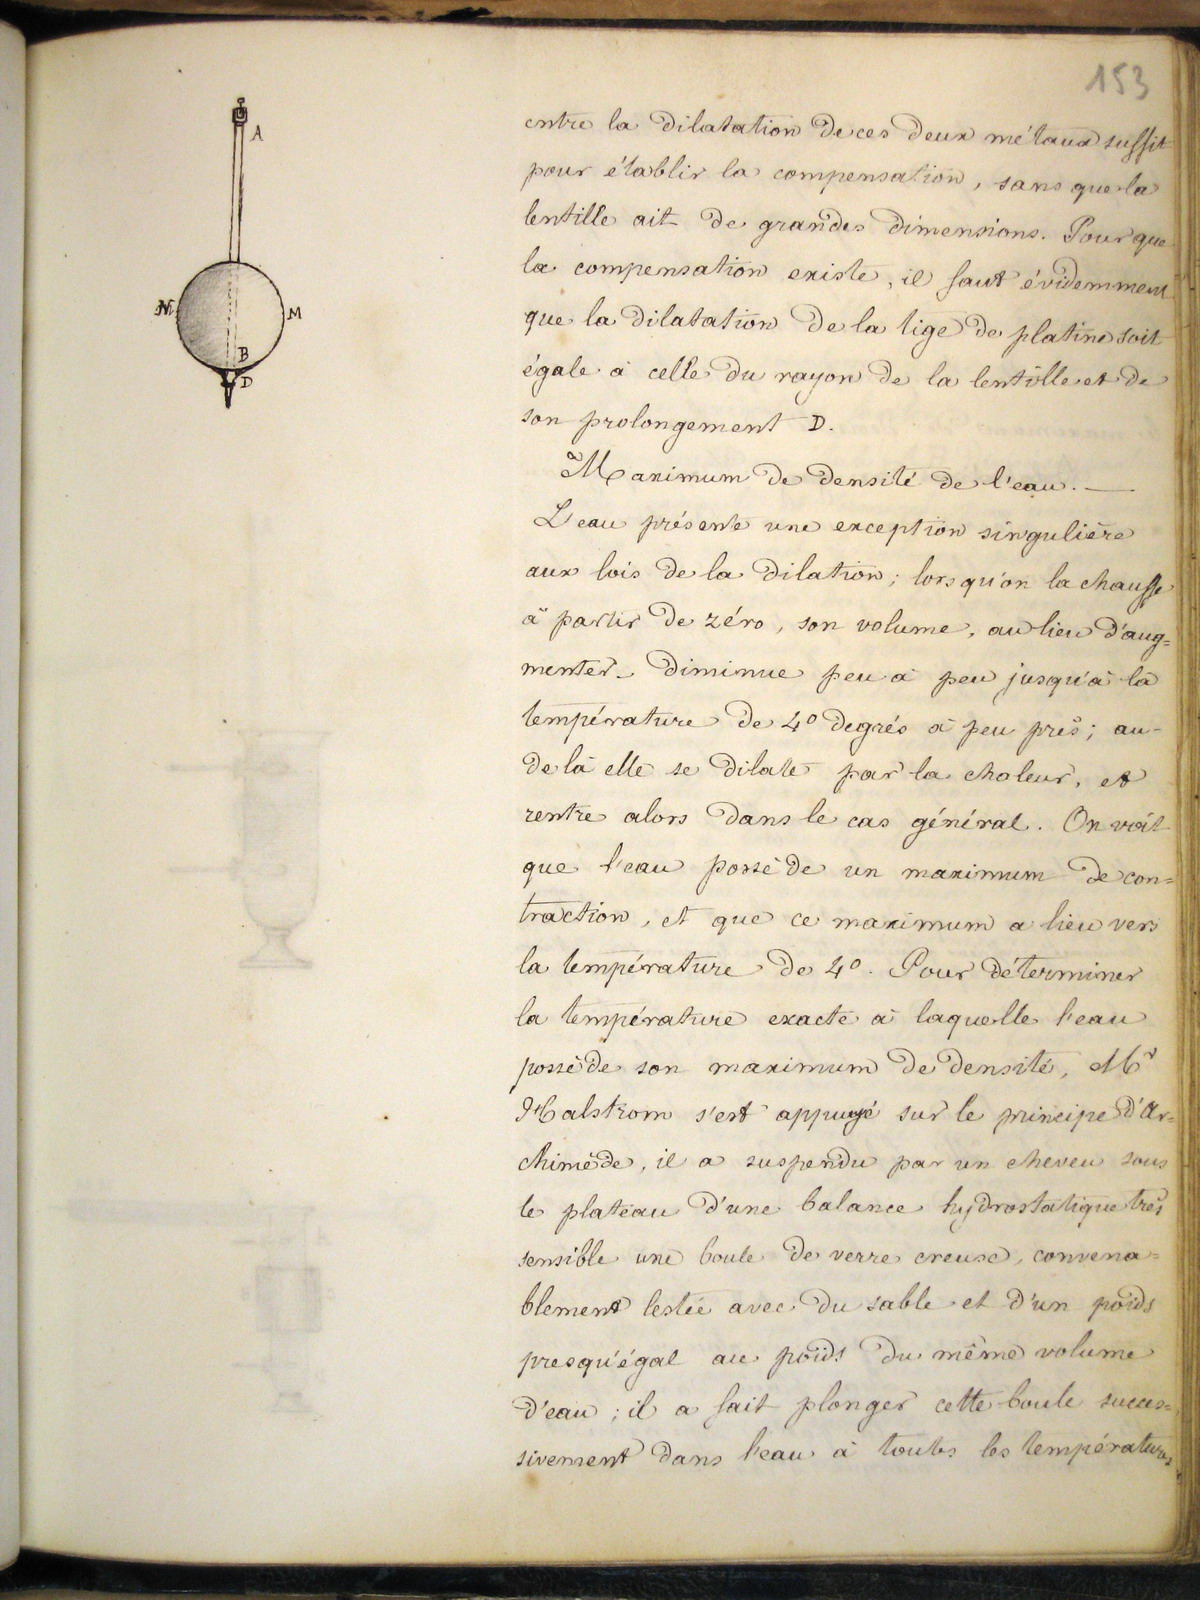 153
A
N
M
B
D
entre la dilatation de ces deux métaux suffit
pour établir la compensation, sans que la
lentille ait de grandes dimensions. Pour que
la compensation existe, il faut évidemment
que la dilatation de la tige de platine soit
égale à celle du rayon de la lentille et de
son prolongement D.
Maximum de densité de l'eau. —
L'eau présente une exception singulière
aux lois de la dilation ; lorsqu'on la chauffe
à partir de zéro, son volume, au lieu d'aug=
menter_ diminue peu à peu jusqu'à la
température de 4° degrés à peu près ; au-
delà elle se dilate par la chaleur, et
rentre alors dans le cas général. On voit
que l'eau possède un maximum de con=
traction, et que ce maximum a lieu vers
la température de 4°. Pour déterminer
la température exacte à laquelle l'eau
possède son maximum de densité, Mr
Halstrom s'est appuyé sur le principe d'Ar=
chimède, il a suspendu par un cheveu sous
le plateau d'une balance hydrostatique très
sensible une boule de verre creuse, convena=
blement lestée avec du sable et d'un poids
presqu'égal au poids du même volume
d'eau ; il a fait plonger cette boule succes=
sivement dans l'eau à toutes les températures